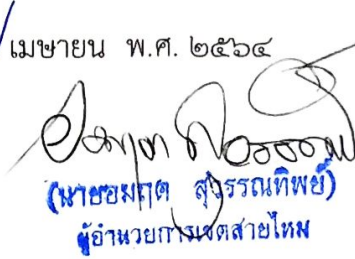 เมษายน พ.ศ. ๒๕๖๔
(นายอมฤต สุวรรณทิพย์)
ผู้อำนวยการเขตสายไหม